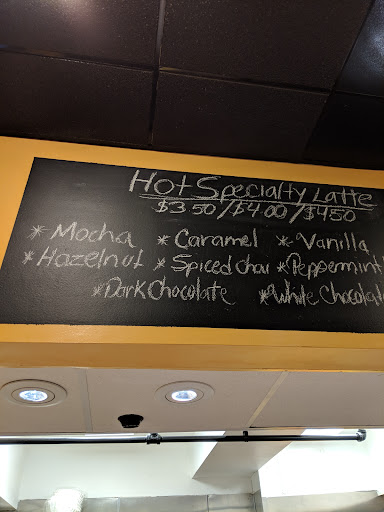 Hot Specialty Latte
$3.50/$4.00/$4.50
* Mocha * Caramel * Vanilla
* Hazelnut * Spiced Chai * Peppermint
* Dark Chocolate * White Chocolat